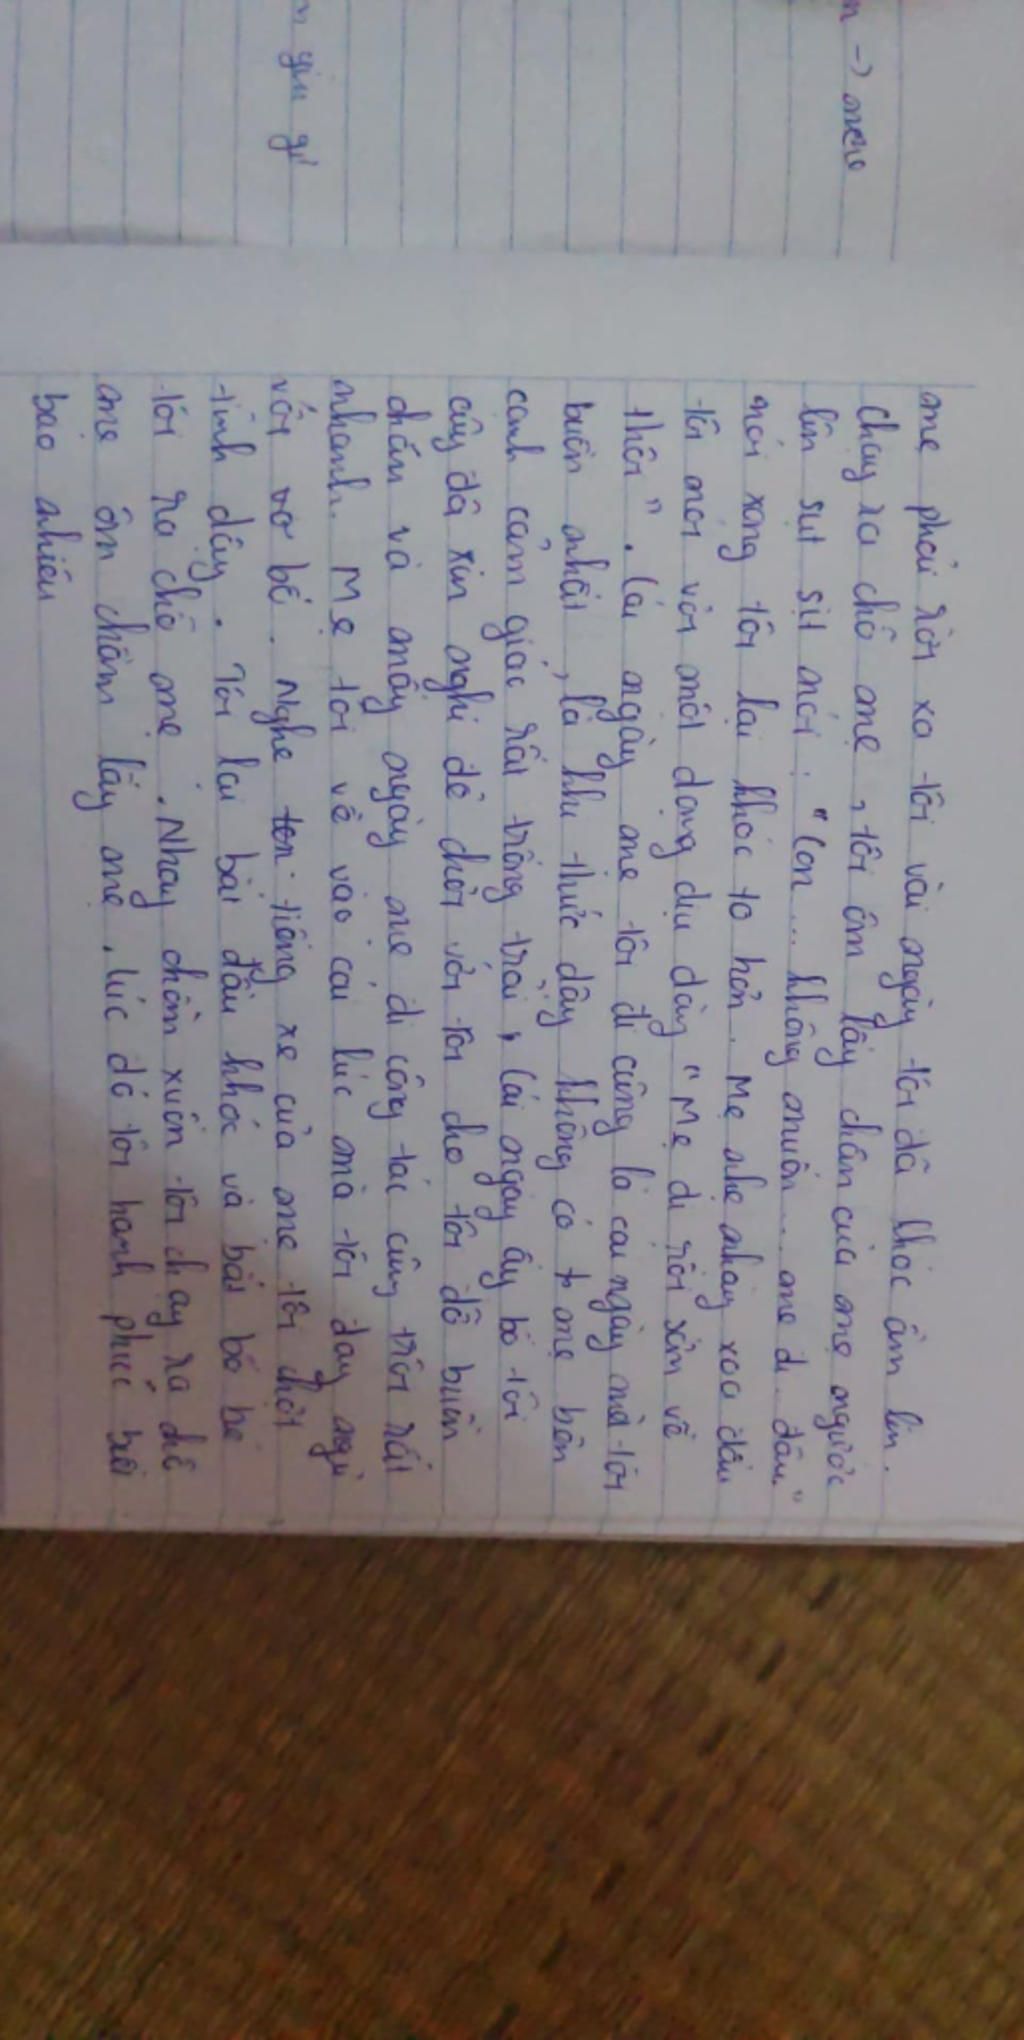 n → mèo
n yêu gì
mẹ phải rời xa tôi vài ngày tôi đã khóc ầm lên.
Chạy ra chỗ mẹ, tôi ôm lấy chân của mẹ ngước
lên sụt sịt nói: "Con... không muốn... mẹ đi đâu."
nói xong tôi lại khóc to hơn. Mẹ nhẹ nhàng xoa đầu
tôi nói với một giọng dịu dàng "Mẹ đi rồi sớm về
thôi". Cái ngày mẹ tôi đi cũng là cái ngày mà tôi
buồn nhất, là khi thức dậy không có mẹ bên
cạnh cảm giác rất trống trải, cái ngày ấy bố tôi
cũng đã xin nghỉ để chơi với tôi cho tôi đỡ buồn
chán và mấy ngày mẹ đi công tác cũng trôi rất
nhanh. Mẹ tôi về vào cái lúc mà tôi đang ngủ
với bố. Nghe tiếng xe của mẹ tôi chợt
tỉnh dậy. Tôi lại bắt đầu khóc và bắt bố bế
tôi ra chỗ mẹ. Nhảy chồm xuống tôi chạy ra chỗ
mẹ ôm chầm lấy mẹ. lúc đó tôi hạnh phúc biết
bao nhiêu